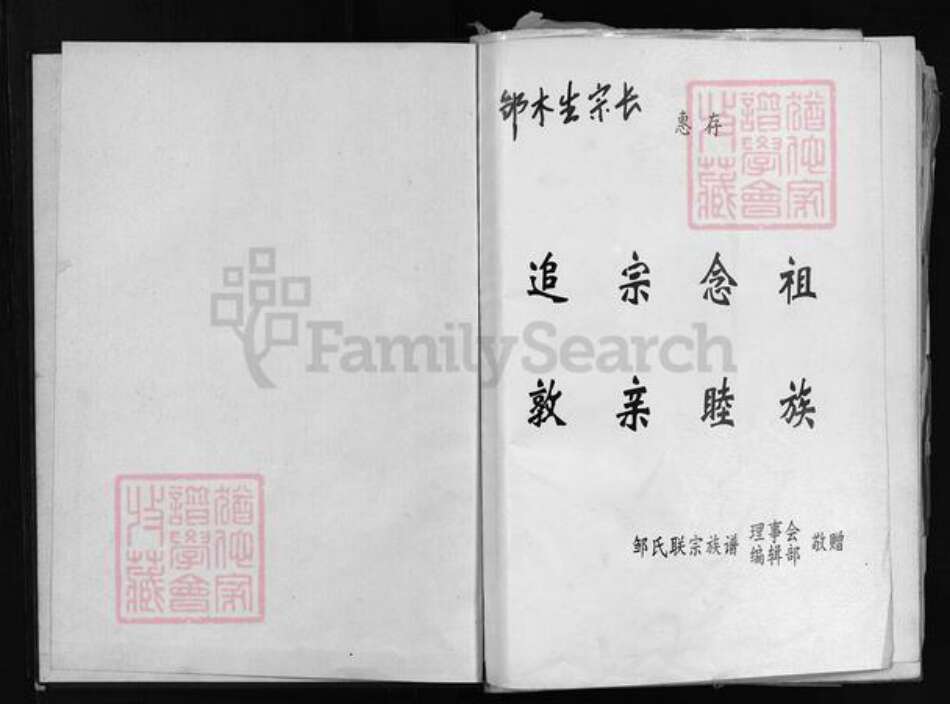 邹木生宗长
惠存
追宗念祖
敦亲睦族
邹氏联宗族谱 理事会 编辑部 敬赠
FamilySearch
猶他家
譜學會
收藏
猶他家
譜學會
收藏